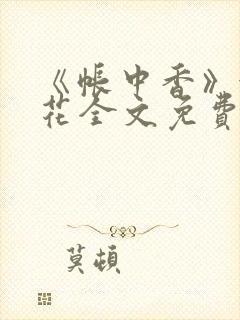 《帐中香》
花全文免費
莫頓